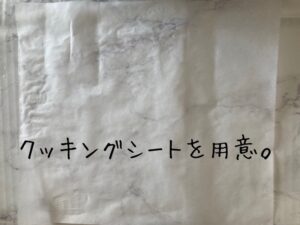 クッキングシートを用意。